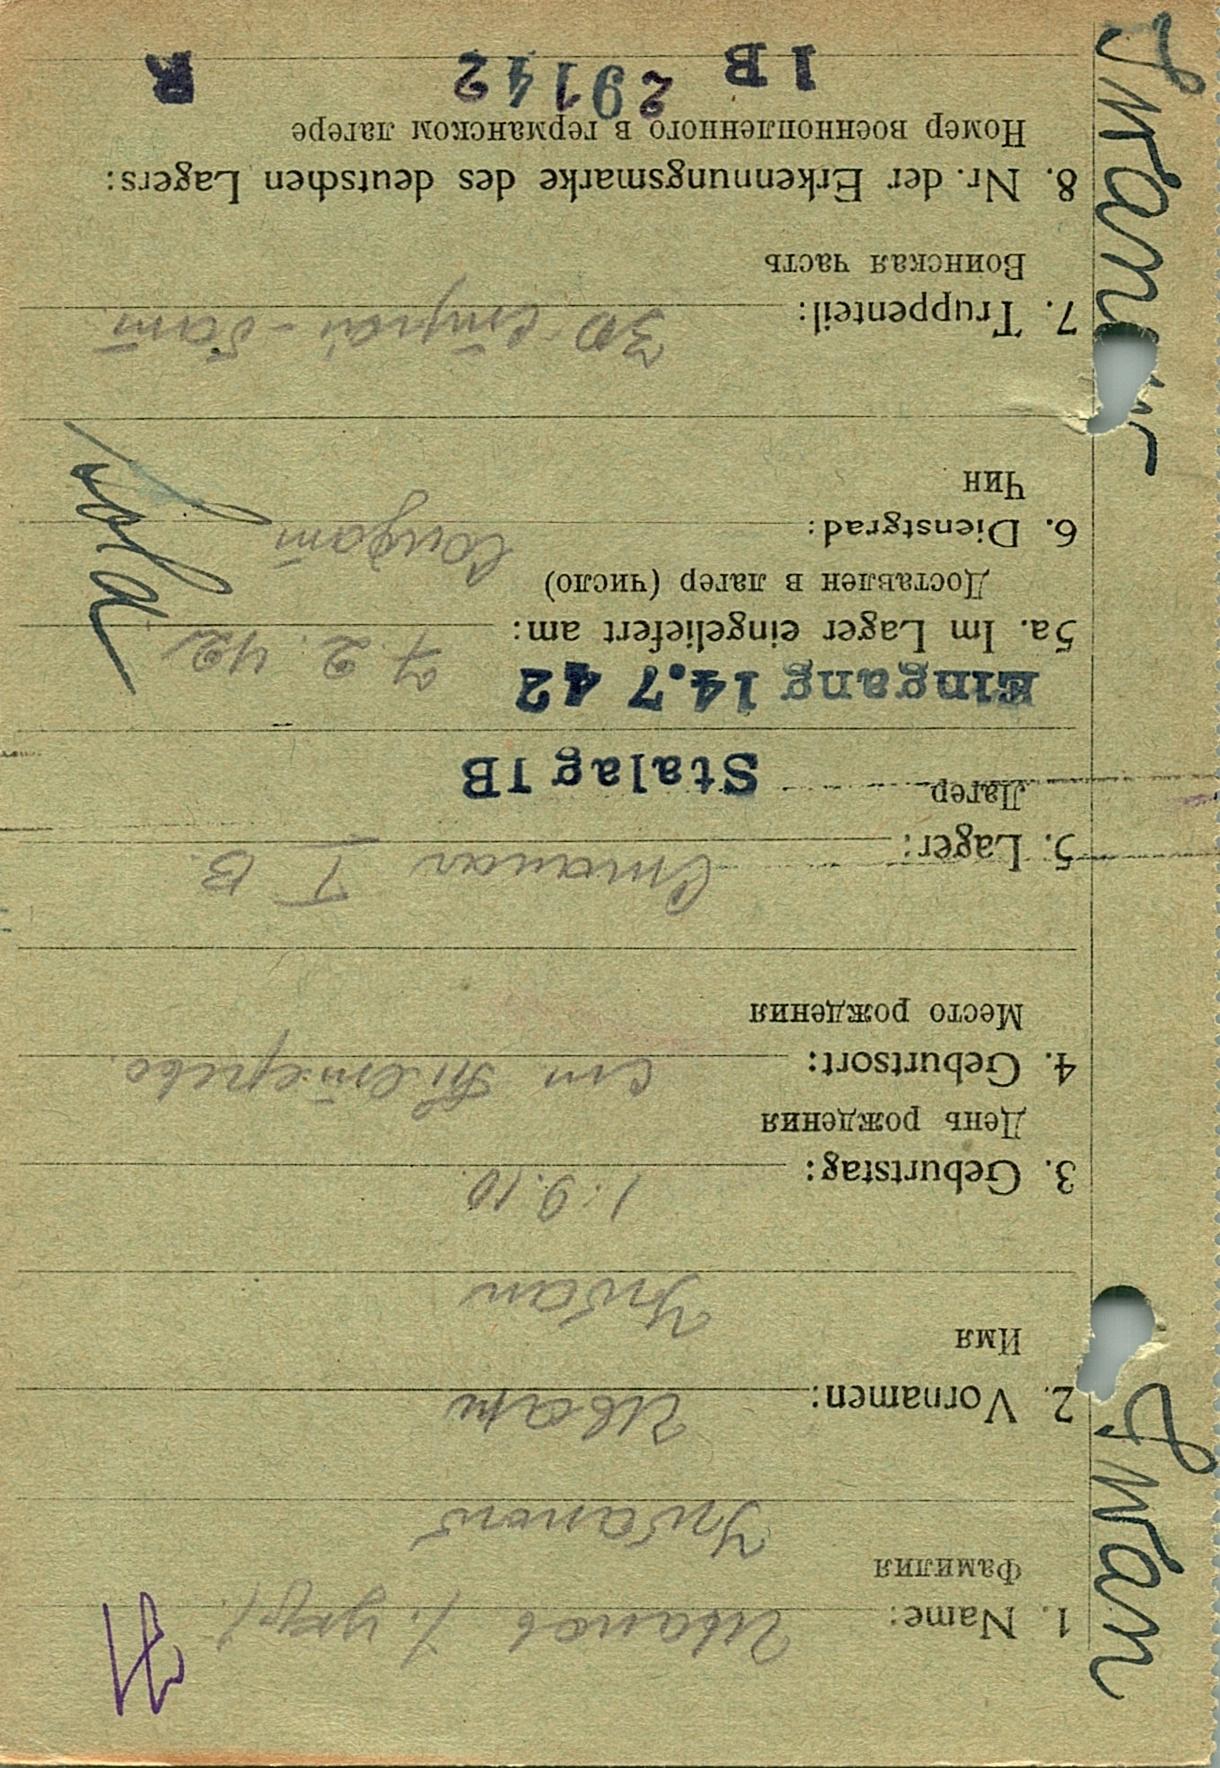 1. Name: Иванов /. укр/.
Фамилия
Iwanow
2. Vornamen: Иван
Имя
Iwan
3. Geburtstag: 1.9.10.
День рождения
4. Geburtsort: ст
Место рождения
5. Lager: Сталаг I B.
Лагер Stalag IB
Eingang 14.7 42
5a. Im Lager eingeliefert am: 7. 2. 42
Доставлен в лагер (число)
6. Dienstgrad: Солдат Sold
Чин
7. Truppenteil: 30 строй-бат.
Воинская часть
8. Nr. der Erkennungsmarke des deutschen Lagers:
Номер военнопленного в германском лагере
1B 29142 R
Iwan
Iwanow